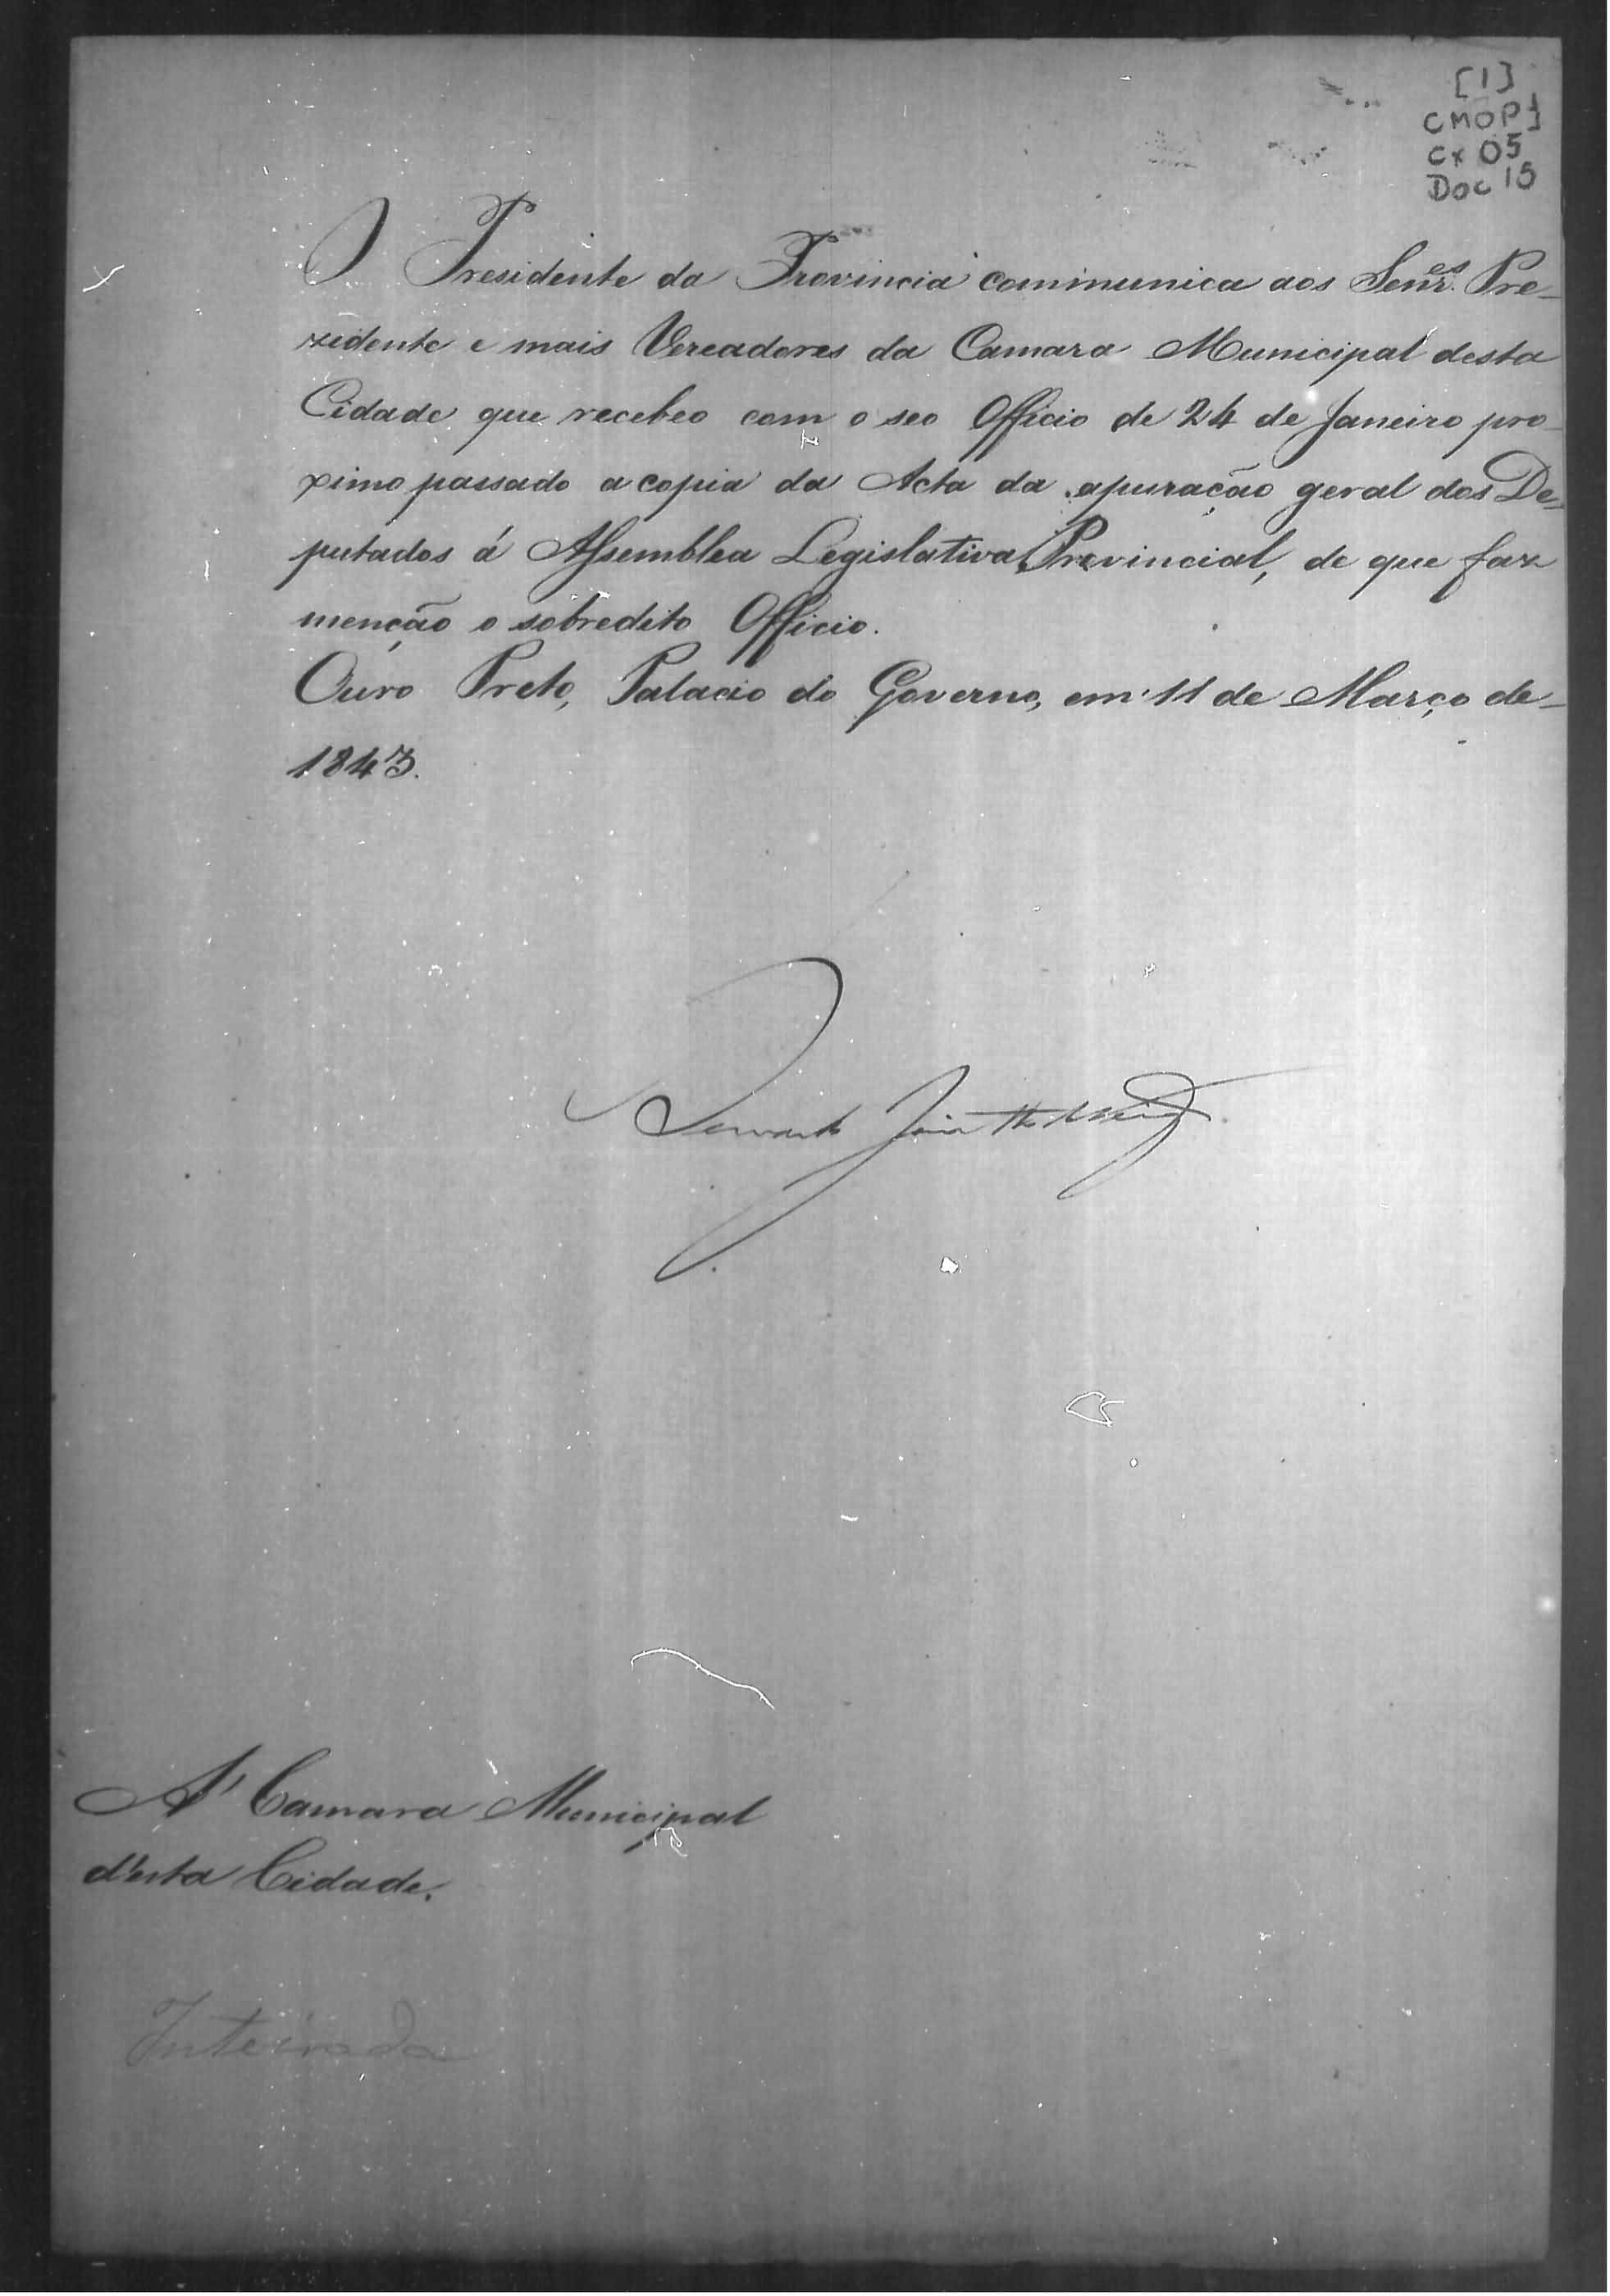 [1]
CMOP
Cx 05
Doc 15
O Presidente da Provincia communica aos Senr.es Pre-
zidente e mais Vereadores da Camara Municipal desta
Cidade que recebeo com o seo Officio de 24 de Janeiro pro-
ximo passado a copia da Acta da apuração geral dos De-
putados á Assemblea Legislativa Provincial, de que faz
menção o sobredito Officio.
Ouro Preto, Palacio do Governo, em 11 de Março de-
1843.
A' Camara Municipal
d'esta Cidade.
Inteirada